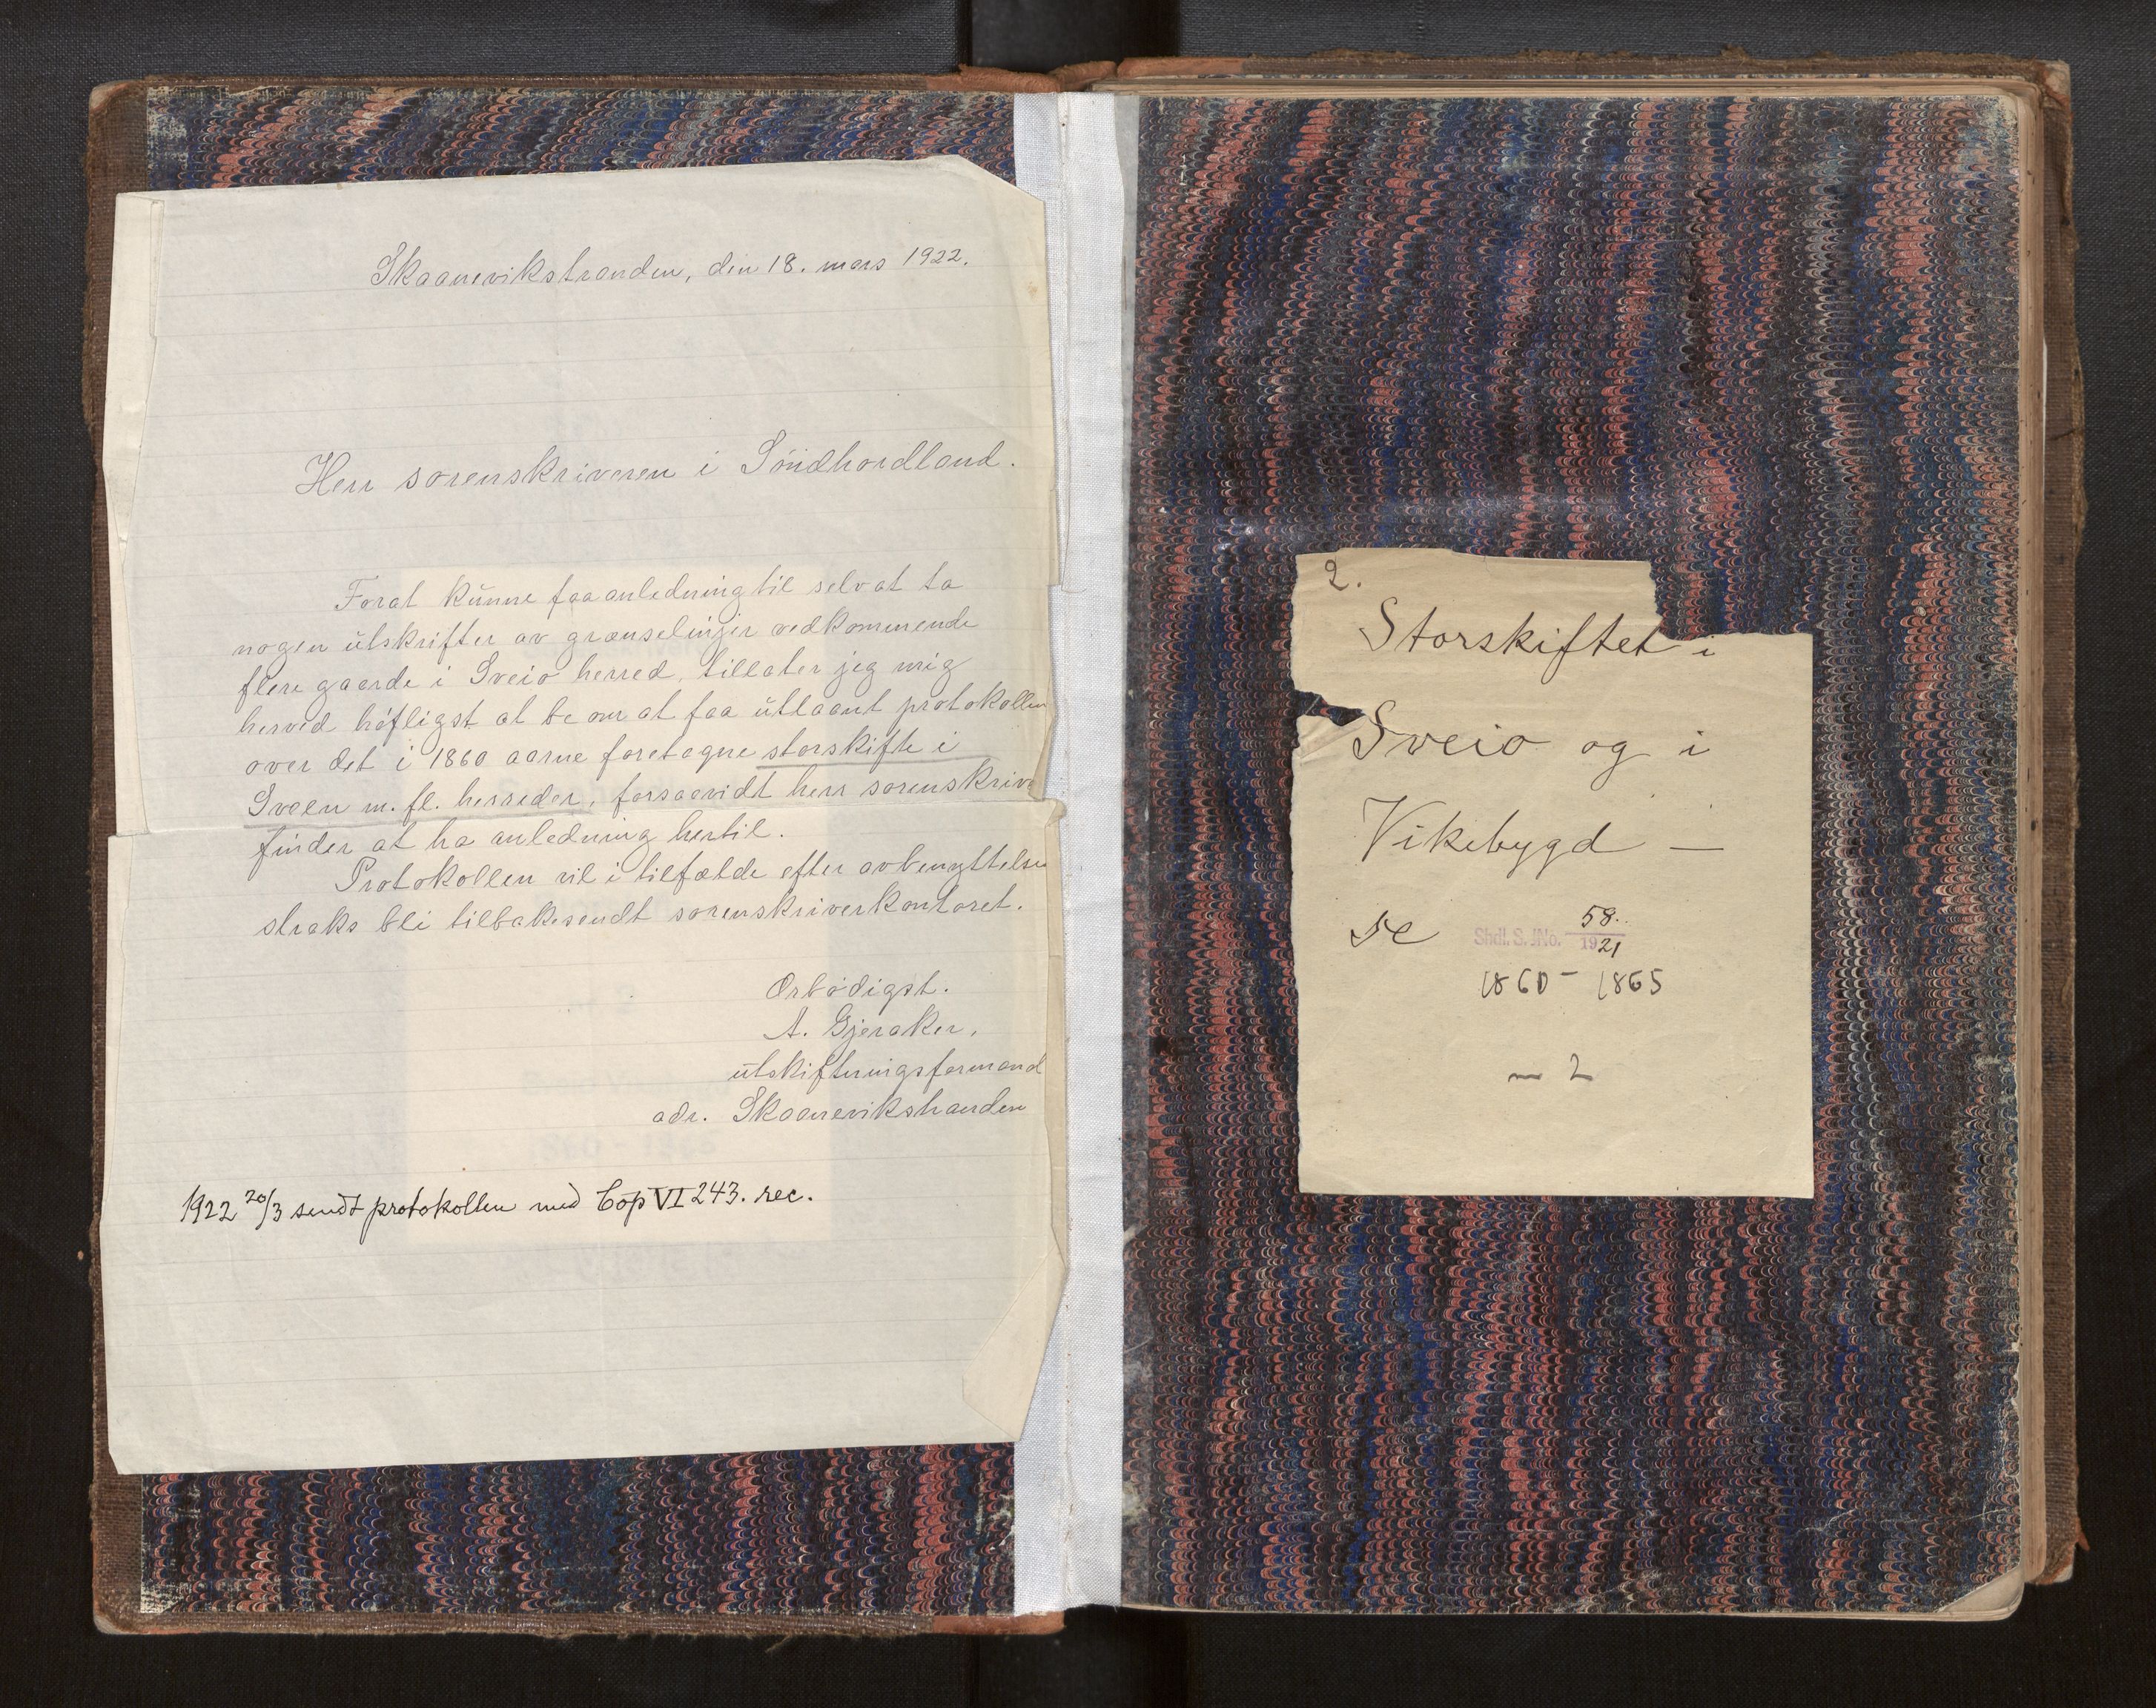 Skaanevikstranden, den 18. mars 1922.
Herr sorenskriveren i Söndhordland.
Forat kunne faa anledning til selv at ta
nogen utskrifter av grænselinjer vedkommende
flere gaarde i Sveio herred, tillater jeg mig
herved höfligst at be om at faa utlaant protokollen
over det i 1860 aarne foretagne storskifte i
Sveen m. fl. herreder, forsaavidt herr sorenskriv
finder at ha anledning hertil.
Protokollen vil i tilfælde efter avbenyttelse
straks bli tilbakesendt sorenskriverkontoret.
Ærbödigst.
A. Gjeraker,
utskiftningsformand
adr. Skaanevikstranden
1922 20/3 sendt protokollen med Cop VI 243. rec.
2.
Storskiftet i
Sveio og i
Vikebygd —
se Shdl. S. JNo. 58/1921
1860 - 1865
— 2